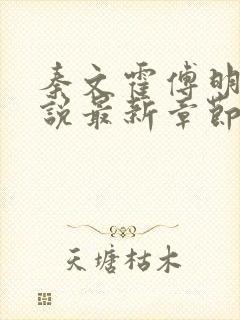 秦文霍傅明
說最新章節
天塘枯木